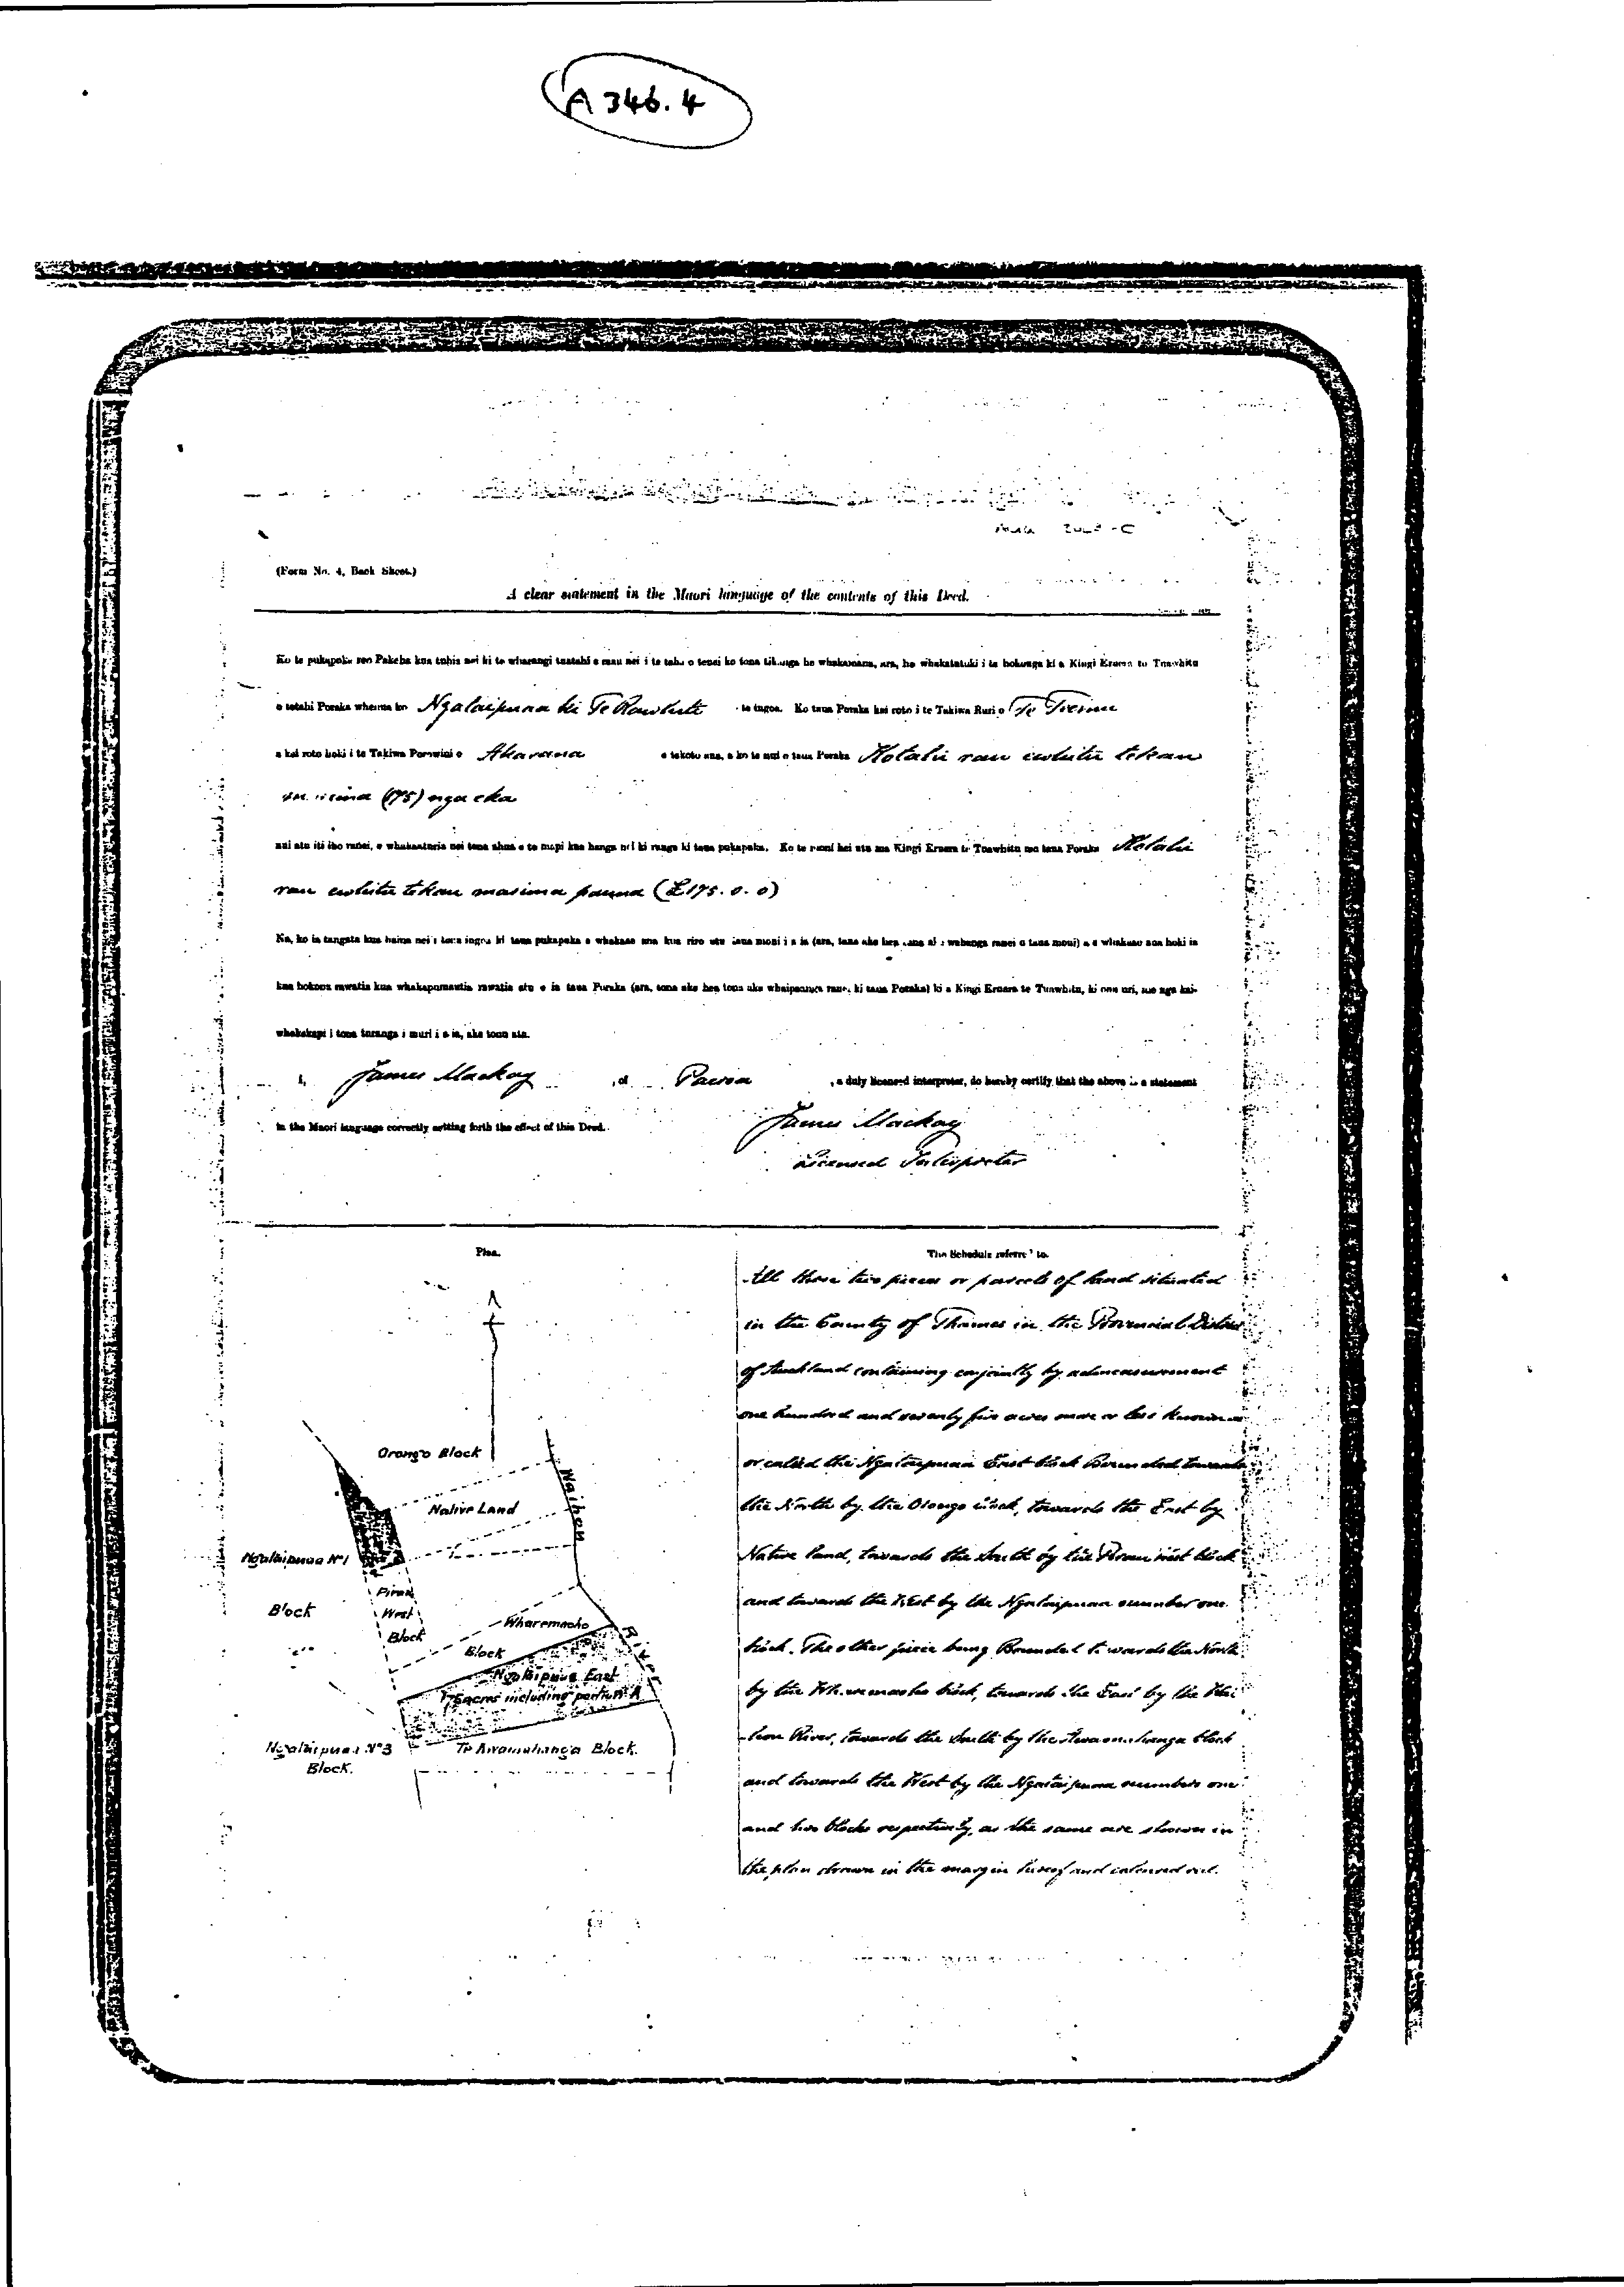 A 346.4
(Form No. 4, Back Sheet.)
A clear statement in the Maori language of the contents of this Deed.
Ko te pukapuka reo Pakeha kua tuhia nei ki te wharangi tuatahi e mau nei i te taha o tenei ko tona tikanga he whakamana, ara, he whakatutuki i te hokonga ki a Kingi Eruera te Tuawhitu
o tetahi Poraka whenua ko Ngataipuaa ki Te Rawhiti te ingoa. Ko taua Poraka kei roto i te Takiwa Ruri o Te
a kei roto hoki i te Takiwa Porowini o Akarana e takoto ana, a ko te nui o taua Poraka Kotahi rau ewhitu tekau
(175) nga eka
nui atu iti iho ranei, e whakaaturia nei tona ahua e te mapi kua hanga nei ki runga ki taua pukapuka. Ko te moni hei utu ma Kingi Eruera te Tuawhitu mo taua Poraka Kotahi
rau ewhitu tekau marima pauna (£175.0.0)
Na, ko ia tangata kua haina nei i tona ingoa ki taua pukapuka e whakaae ana kua riro atu taua moni i a ia (ara, tana ake hea wahanga ranei o taua moni) a e whakaae ana hoki ia
kua hokona rawatia kua whakapumautia rawatia atu e ia taua Poraka (ara, tona ake hea tona ake whaipaanga ranei ki taua Poraka) ki a Kingi Eruera te Tuawhitu, ki ona uri, me nga kai-
whakakapi i tona turanga i muri i a ia, ake tonu atu.
I, James Mackay, of Paeroa, a duly licensed interpreter, do hereby certify that the above is a statement
in the Maori language correctly setting forth the effect of this Deed.
James Mackay
Licensed Interpreter
Plan.
Orongo Block
Native Land
Waihou
Ngataipuaa No 1
Block
West
Block
Wharemaeho
Block
Ngataipuaa East
175 acres including portion A
Ngataipuaa No 3
Block.
Te Awamahanga Block.
The Schedule referred to.
All those two pieces or parcels of land situated
in the County of Thames in the Provincial District
of Auckland containing conjointly by admeasurement
one hundred and seventy five acres more or less known as
or called the Ngataipuaa East block Bounded towards
the North by the Orongo block, towards the East by
Native land, towards the South by the West block
and towards the West by the Ngataipuaa number one
block. The other piece being Bounded towards the North
by the Wharemaeho block, towards the East by the Wai
-hou River, towards the South by the Awamahanga block
and towards the West by the Ngataipuaa numbers one
and two blocks respectively, as the same are shown in
the plan drawn in the margin hereof and coloured red.